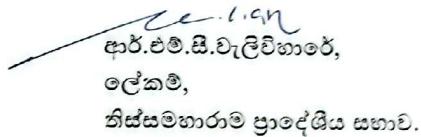 ආර්.එම්.සී.වැලිවිහාරේ,
ලේකම්,
තිස්සමහාරාම ප්‍රාදේශීය සභාව.